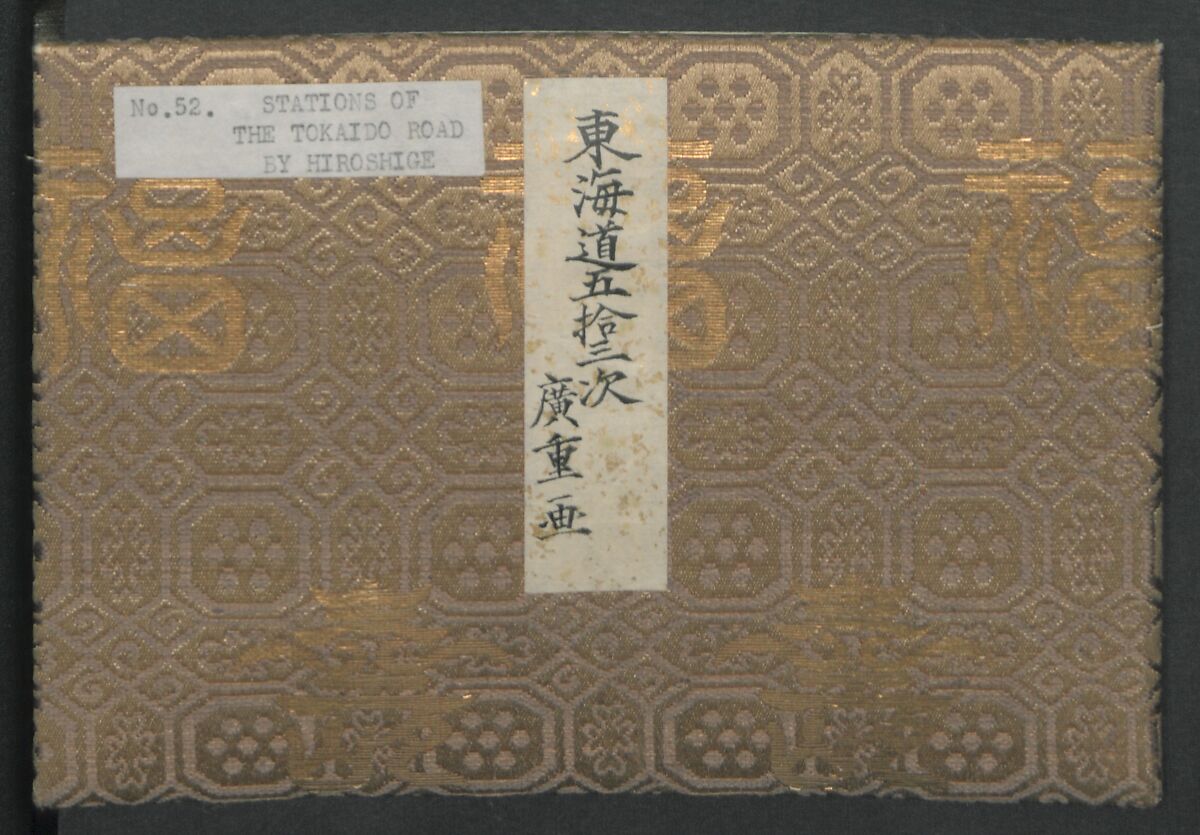 No.52. STATIONS OF
THE TOKAIDO ROAD
BY HIROSHIGE
東海道五拾三次
廣重画